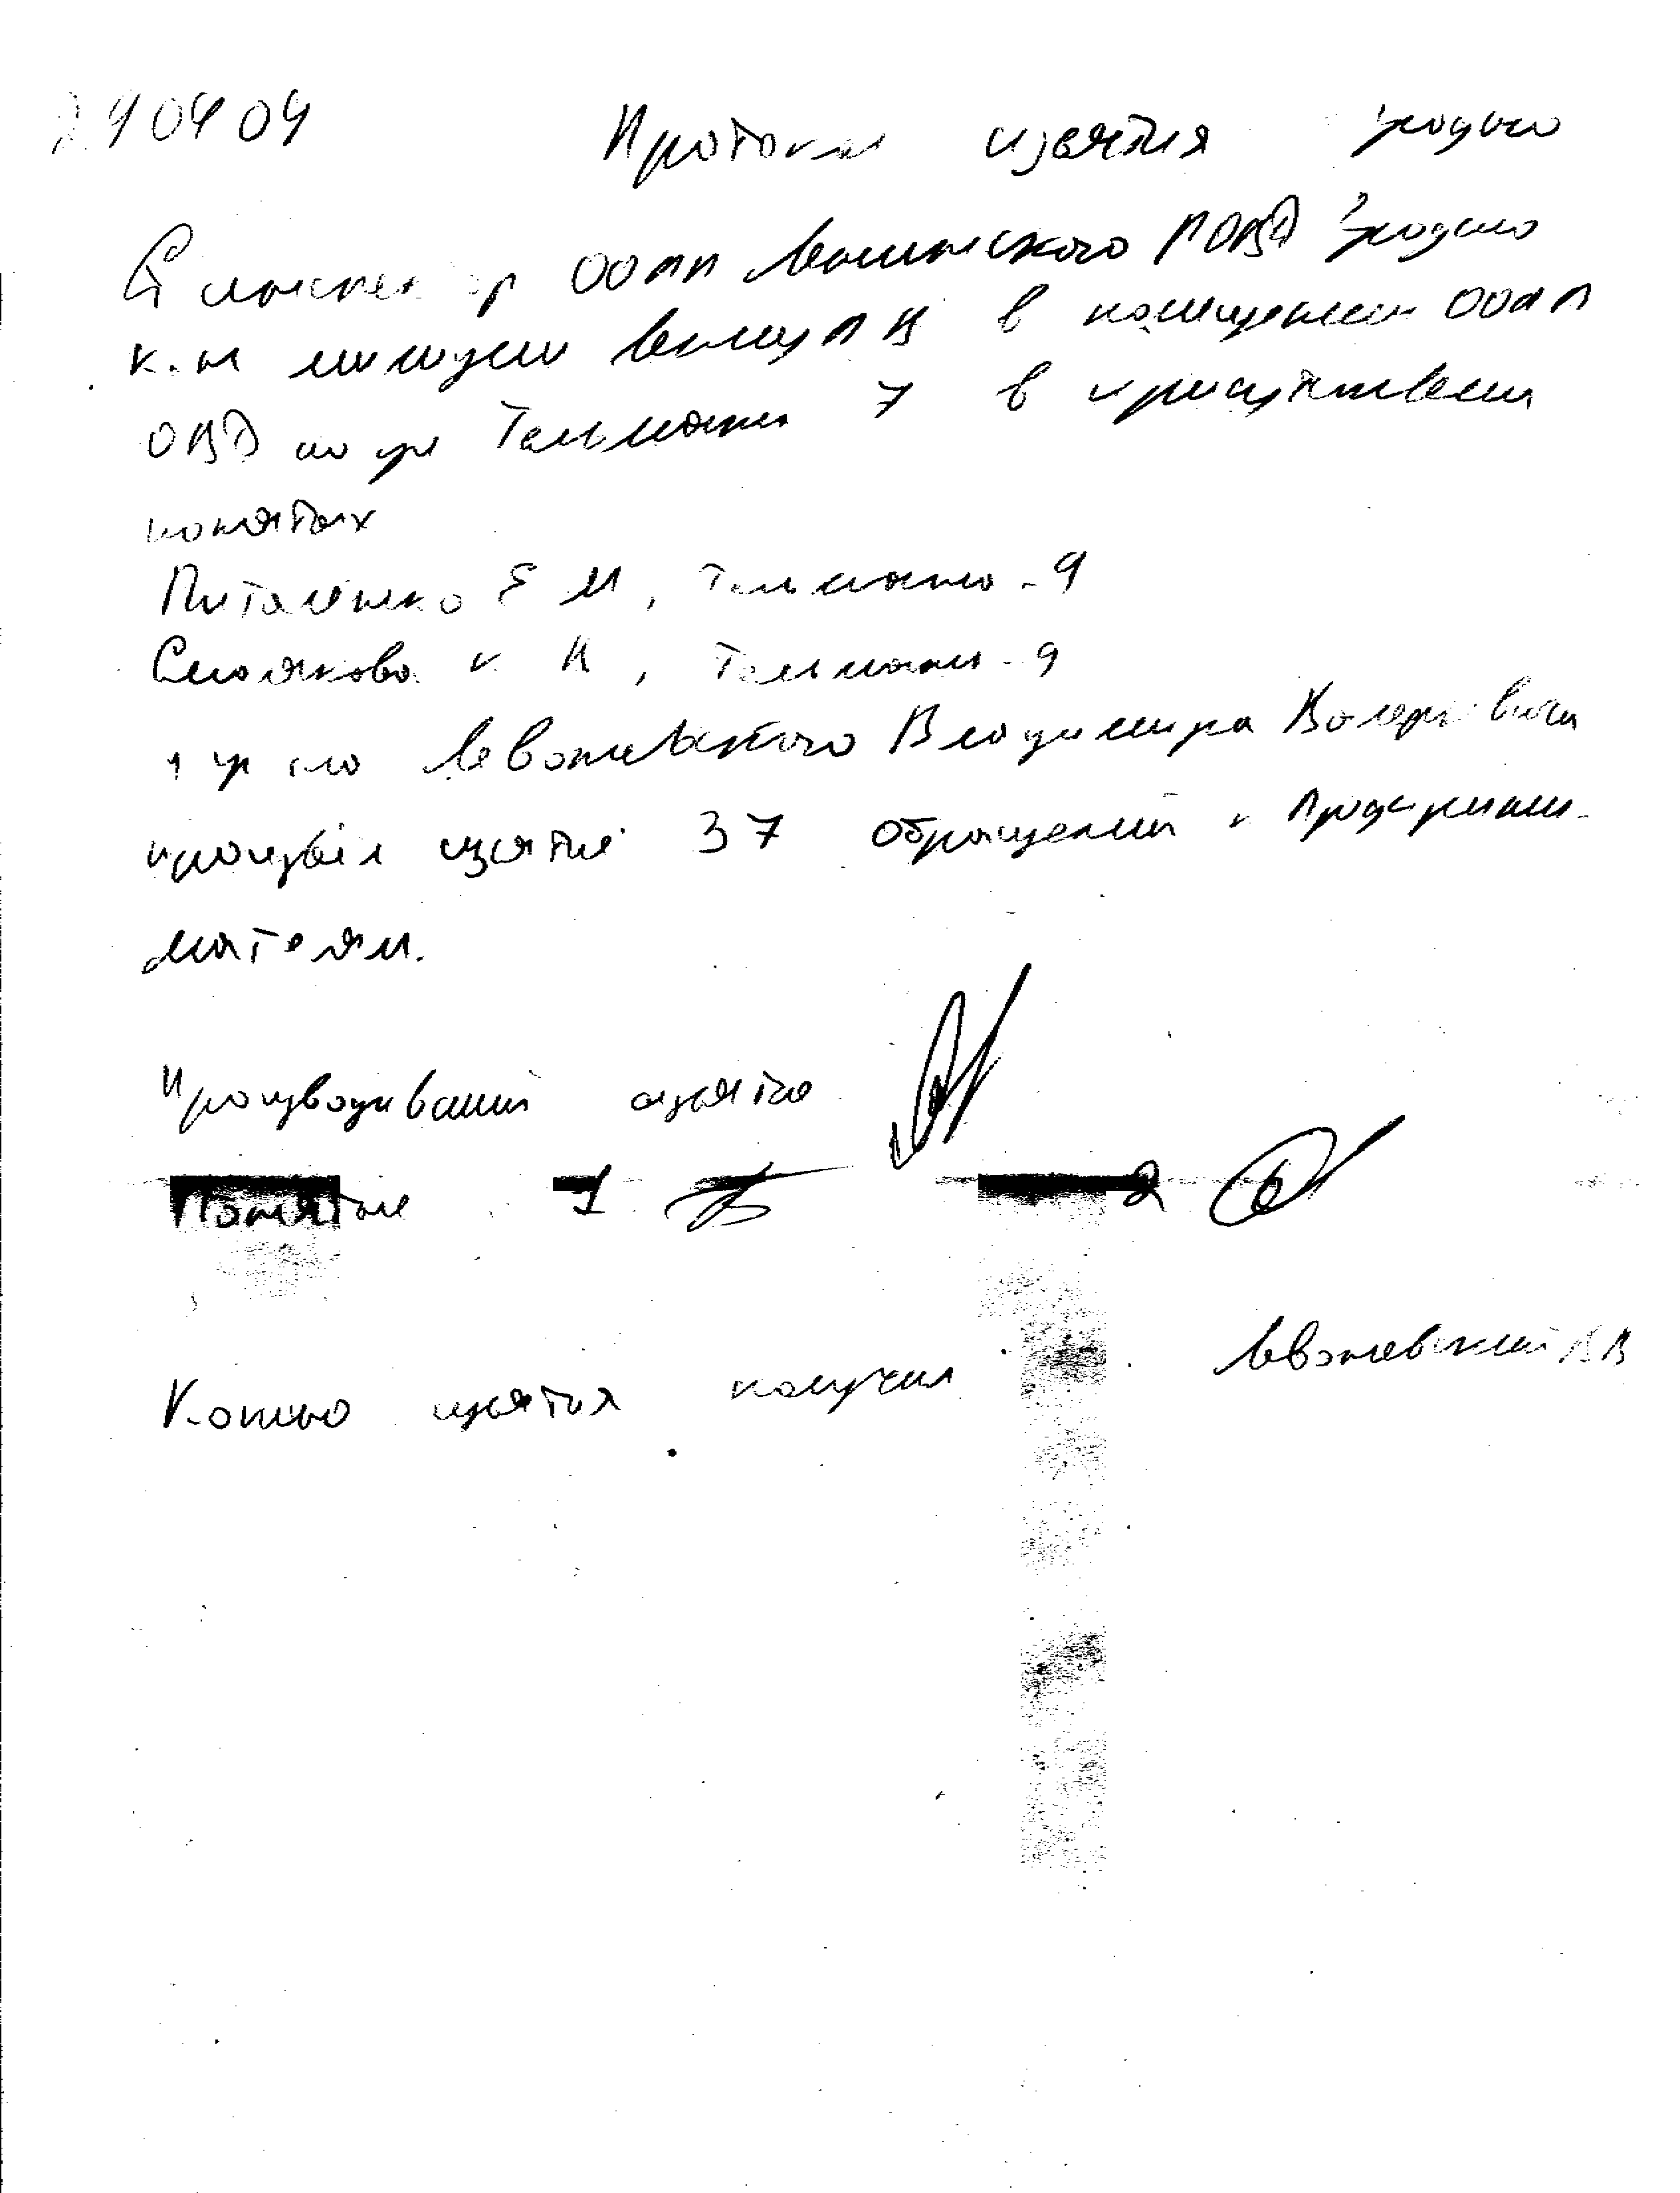 290404 Протокол изъятия г Гродно
Ст инспектор ООПП Ленинского РОВД г Гродно
к-н милиции в помещении ООПП
ОВД по ул Тельмана 7 в присутствии
понятых
Питаленко Е М, Тельмана - 9
Смолякова И В, Тельмана - 9
у гр-на Леваневского Владимира Валерьевича
произвёл изъятие 37 обращений к предприни-
мателям.
Производивший изъятие
Понятые 1 2
Копию изъятия получил Леваневский В В